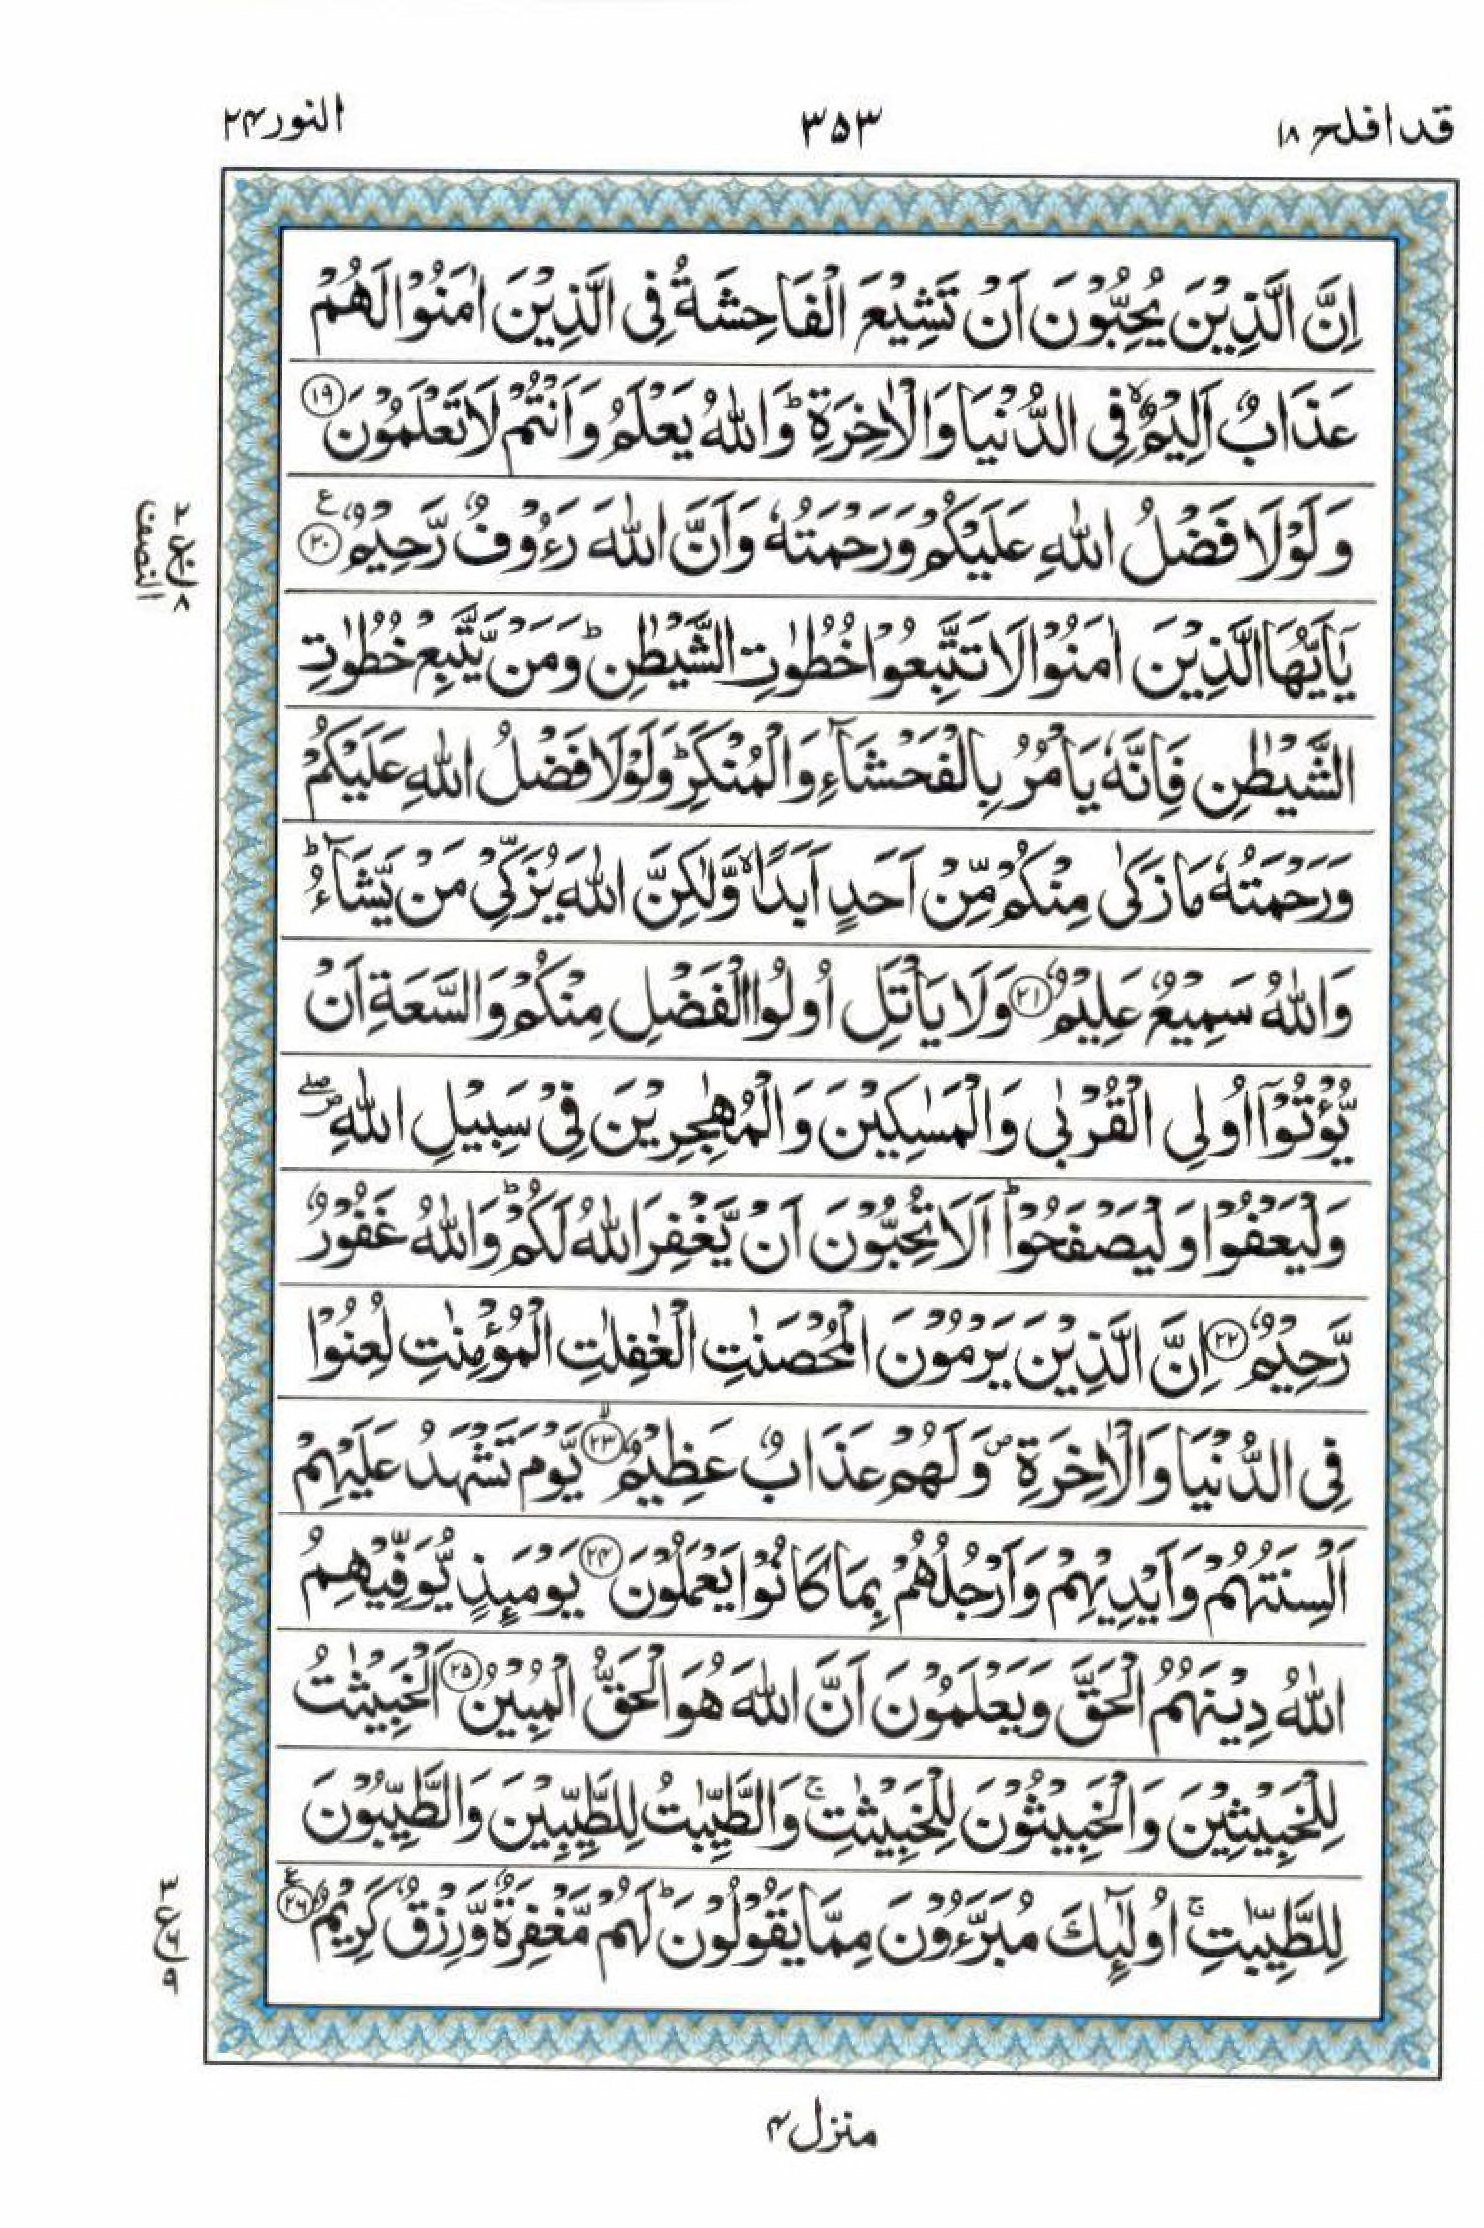 قد افلح ۱۸
۳۵۳
النور ۲۴
اِنَّ الَّذِيْنَ يُحِبُّوْنَ اَنْ تَشِيْعَ الْفَاحِشَةُ فِى الَّذِيْنَ اٰمَنُوْا لَهُمْ
عَذَابٌ اَلِيْمٌ ۙ فِى الدُّنْيَا وَالْاٰخِرَةِ ؕ وَاللّٰهُ يَعْلَمُ وَاَنْتُمْ لَا تَعْلَمُوْنَ ۱۹
وَلَوْلَا فَضْلُ اللّٰهِ عَلَيْكُمْ وَرَحْمَتُهٗ وَاَنَّ اللّٰهَ رَءُوْفٌ رَّحِيْمٌ ۲۰ ع
يٰۤاَيُّهَا الَّذِيْنَ اٰمَنُوْا لَا تَتَّبِعُوْا خُطُوٰتِ الشَّيْطٰنِ ؕ وَمَنْ يَّتَّبِعْ خُطُوٰتِ
الشَّيْطٰنِ فَاِنَّهٗ يَاْمُرُ بِالْفَحْشَآءِ وَالْمُنْكَرِ ؕ وَلَوْلَا فَضْلُ اللّٰهِ عَلَيْكُمْ
وَرَحْمَتُهٗ مَا زَكٰى مِنْكُمْ مِّنْ اَحَدٍ اَبَدًا ۙ وَّلٰكِنَّ اللّٰهَ يُزَكِّىْ مَنْ يَّشَآءُ ؕ
وَاللّٰهُ سَمِيْعٌ عَلِيْمٌ ۲۱ وَلَا يَاْتَلِ اُولُوا الْفَضْلِ مِنْكُمْ وَالسَّعَةِ اَنْ
يُّؤْتُوْۤا اُولِى الْقُرْبٰى وَالْمَسٰكِيْنَ وَالْمُهٰجِرِيْنَ فِىْ سَبِيْلِ اللّٰهِ ۖ
وَلْيَعْفُوْا وَلْيَصْفَحُوْا ؕ اَلَا تُحِبُّوْنَ اَنْ يَّغْفِرَ اللّٰهُ لَكُمْ ؕ وَاللّٰهُ غَفُوْرٌ
رَّحِيْمٌ ۲۲ اِنَّ الَّذِيْنَ يَرْمُوْنَ الْمُحْصَنٰتِ الْغٰفِلٰتِ الْمُؤْمِنٰتِ لُعِنُوْا
فِى الدُّنْيَا وَالْاٰخِرَةِ ۪ وَلَهُمْ عَذَابٌ عَظِيْمٌ ۙ ۲۳ يَّوْمَ تَشْهَدُ عَلَيْهِمْ
اَلْسِنَتُهُمْ وَاَيْدِيْهِمْ وَاَرْجُلُهُمْ بِمَا كَانُوْا يَعْمَلُوْنَ ۲۴ يَوْمَئِذٍ يُّوَفِّيْهِمُ
اللّٰهُ دِيْنَهُمُ الْحَقَّ وَيَعْلَمُوْنَ اَنَّ اللّٰهَ هُوَ الْحَقُّ الْمُبِيْنُ ۲۵ اَلْخَبِيْثٰتُ
لِلْخَبِيْثِيْنَ وَالْخَبِيْثُوْنَ لِلْخَبِيْثٰتِ ۚ وَالطَّيِّبٰتُ لِلطَّيِّبِيْنَ وَالطَّيِّبُوْنَ
لِلطَّيِّبٰتِ ۚ اُولٰٓئِكَ مُبَرَّءُوْنَ مِمَّا يَقُوْلُوْنَ ؕ لَهُمْ مَّغْفِرَةٌ وَّرِزْقٌ كَرِيْمٌ ۲۶ ع
۲
ع
۸
النصف
۳
ع
۶
۹
منزل ۴